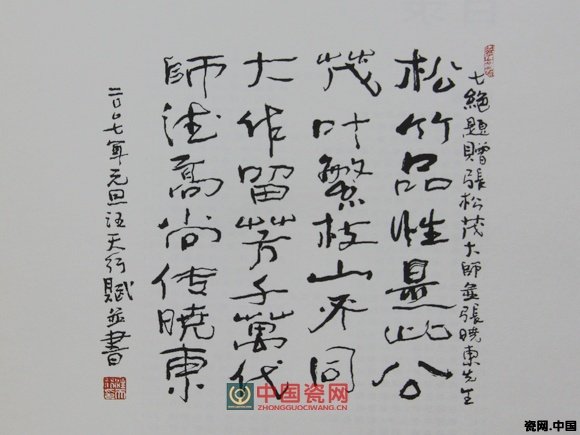 七絕題贈張松茂大師並張曉東先生
松竹品性是此公
茂叶繁枝山不同
大作留芳千萬代
師法高尚传曉東
二〇〇七年元旦汪天行賦並書
中国瓷网
ZHONGGUOCIWANG.CN
瓷网.中国